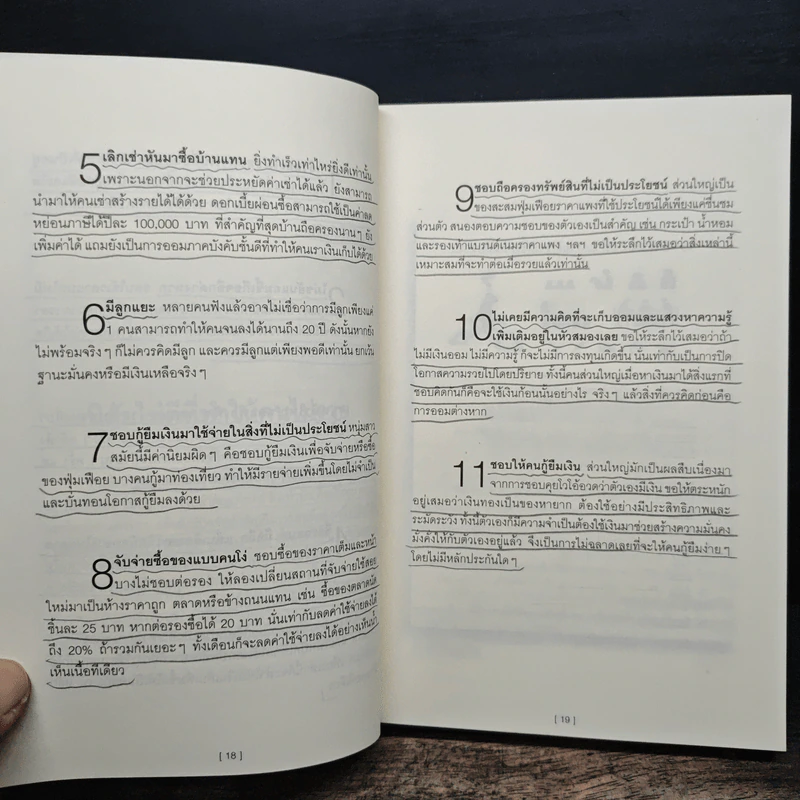 5 เลิกเช่าหันมาซื้อบ้านแทน ยิ่งทำเร็วเท่าไหร่ยิ่งดีเท่านั้น
เพราะนอกจากจะช่วยประหยัดค่าเช่าได้แล้ว ยังสามารถ
นำมาให้คนเช่าสร้างรายได้ได้ด้วย ดอกเบี้ยผ่อนซื้อสามารถใช้เป็นค่าลด
หย่อนภาษีได้ปีละ 100,000 บาท ที่สำคัญที่สุดบ้านถือครองนานๆ ยัง
เพิ่มค่าได้ แถมยังเป็นการออมภาคบังคับชั้นดีที่ทำให้คนเราเงินเก็บได้ด้วย
6 มีลูกแยะ หลายคนฟังแล้วอาจไม่เชื่อว่าการมีลูกเพียงแค่
1 คนสามารถทำให้คนจนลงได้นานถึง 20 ปี ดังนั้นหากยัง
ไม่พร้อมจริงๆ ก็ไม่ควรคิดมีลูก และควรมีลูกแต่เพียงพอดีเท่านั้น ยกเว้น
ฐานะมั่นคงหรือมีเงินเหลือจริงๆ
7 ชอบกู้ยืมเงินมาใช้จ่ายในสิ่งที่ไม่เป็นประโยชน์ หนุ่มสาว
สมัยนี้มีค่านิยมผิดๆ คือชอบกู้ยืมเงินเพื่อจับจ่ายหรือซื้อ
ของฟุ่มเฟือย บางคนกู้มาท่องเที่ยว ทำให้มีรายจ่ายเพิ่มขึ้นโดยไม่จำเป็น
และบั่นทอนโอกาสกู้ยืมลงด้วย
8 จับจ่ายซื้อของแบบคนโง่ ชอบซื้อของราคาเต็มและหน้า
บางไม่ชอบต่อรอง ให้ลองเปลี่ยนสถานที่จับจ่ายใช้สอย
ใหม่มาเป็นห้างราคาถูก ตลาดหรือข้างถนนแทน เช่น ซื้อของตลาดนัด
ชิ้นละ 25 บาท หากต่อรองซื้อได้ 20 บาท นั่นเท่ากับลดค่าใช้จ่ายลงได้
ถึง 20% ถ้ารวมกันเยอะๆ ทั้งเดือนก็จะลดค่าใช้จ่ายลงได้อย่างเห็นน้ำ
เห็นเนื้อทีเดียว
[ 18 ]
9 ชอบถือครองทรัพย์สินที่ไม่เป็นประโยชน์ ส่วนใหญ่เป็น
ของสะสมฟุ่มเฟือยราคาแพงที่ใช้ประโยชน์ได้เพียงแค่ชื่นชม
ส่วนตัว สนองตอบความชอบของตัวเองเป็นสำคัญ เช่น กระเป๋า น้ำหอม
และรองเท้าแบรนด์เนมราคาแพง ฯลฯ ขอให้ระลึกไว้เสมอว่าสิ่งเหล่านี้
เหมาะสมที่จะทำต่อเมื่อรวยแล้วเท่านั้น
10 ไม่เคยมีความคิดที่จะเก็บออมและแสวงหาความรู้
เพิ่มเติมอยู่ในหัวสมองเลย ขอให้ระลึกไว้เสมอว่าถ้า
ไม่มีเงินออม ไม่มีความรู้ ก็จะไม่มีการลงทุนเกิดขึ้น นั่นเท่ากับเป็นการปิด
โอกาสความรวยไปโดยปริยาย ทั้งนี้คนส่วนใหญ่เมื่อหาเงินมาได้สิ่งแรกที่
ชอบคิดกันก็คือจะใช้เงินก้อนนั้นอย่างไร จริงๆ แล้วสิ่งที่ควรคิดก่อนคือ
การออมต่างหาก
11 ชอบให้คนกู้ยืมเงิน ส่วนใหญ่มักเป็นผลสืบเนื่องมา
จากการชอบคุยโวโอ้อวดว่าตัวเองมีเงิน ขอให้ตระหนัก
อยู่เสมอว่าเงินทองเป็นของหายาก ต้องใช้อย่างมีประสิทธิภาพและ
ระมัดระวัง ทั้งนี้ตัวเองก็มีความจำเป็นต้องใช้เงินมาช่วยสร้างความมั่นคง
มั่งคั่งให้กับตัวเองอยู่แล้ว จึงเป็นการไม่ฉลาดเลยที่จะให้คนกู้ยืมง่ายๆ
โดยไม่มีหลักประกันใดๆ
[ 19 ]